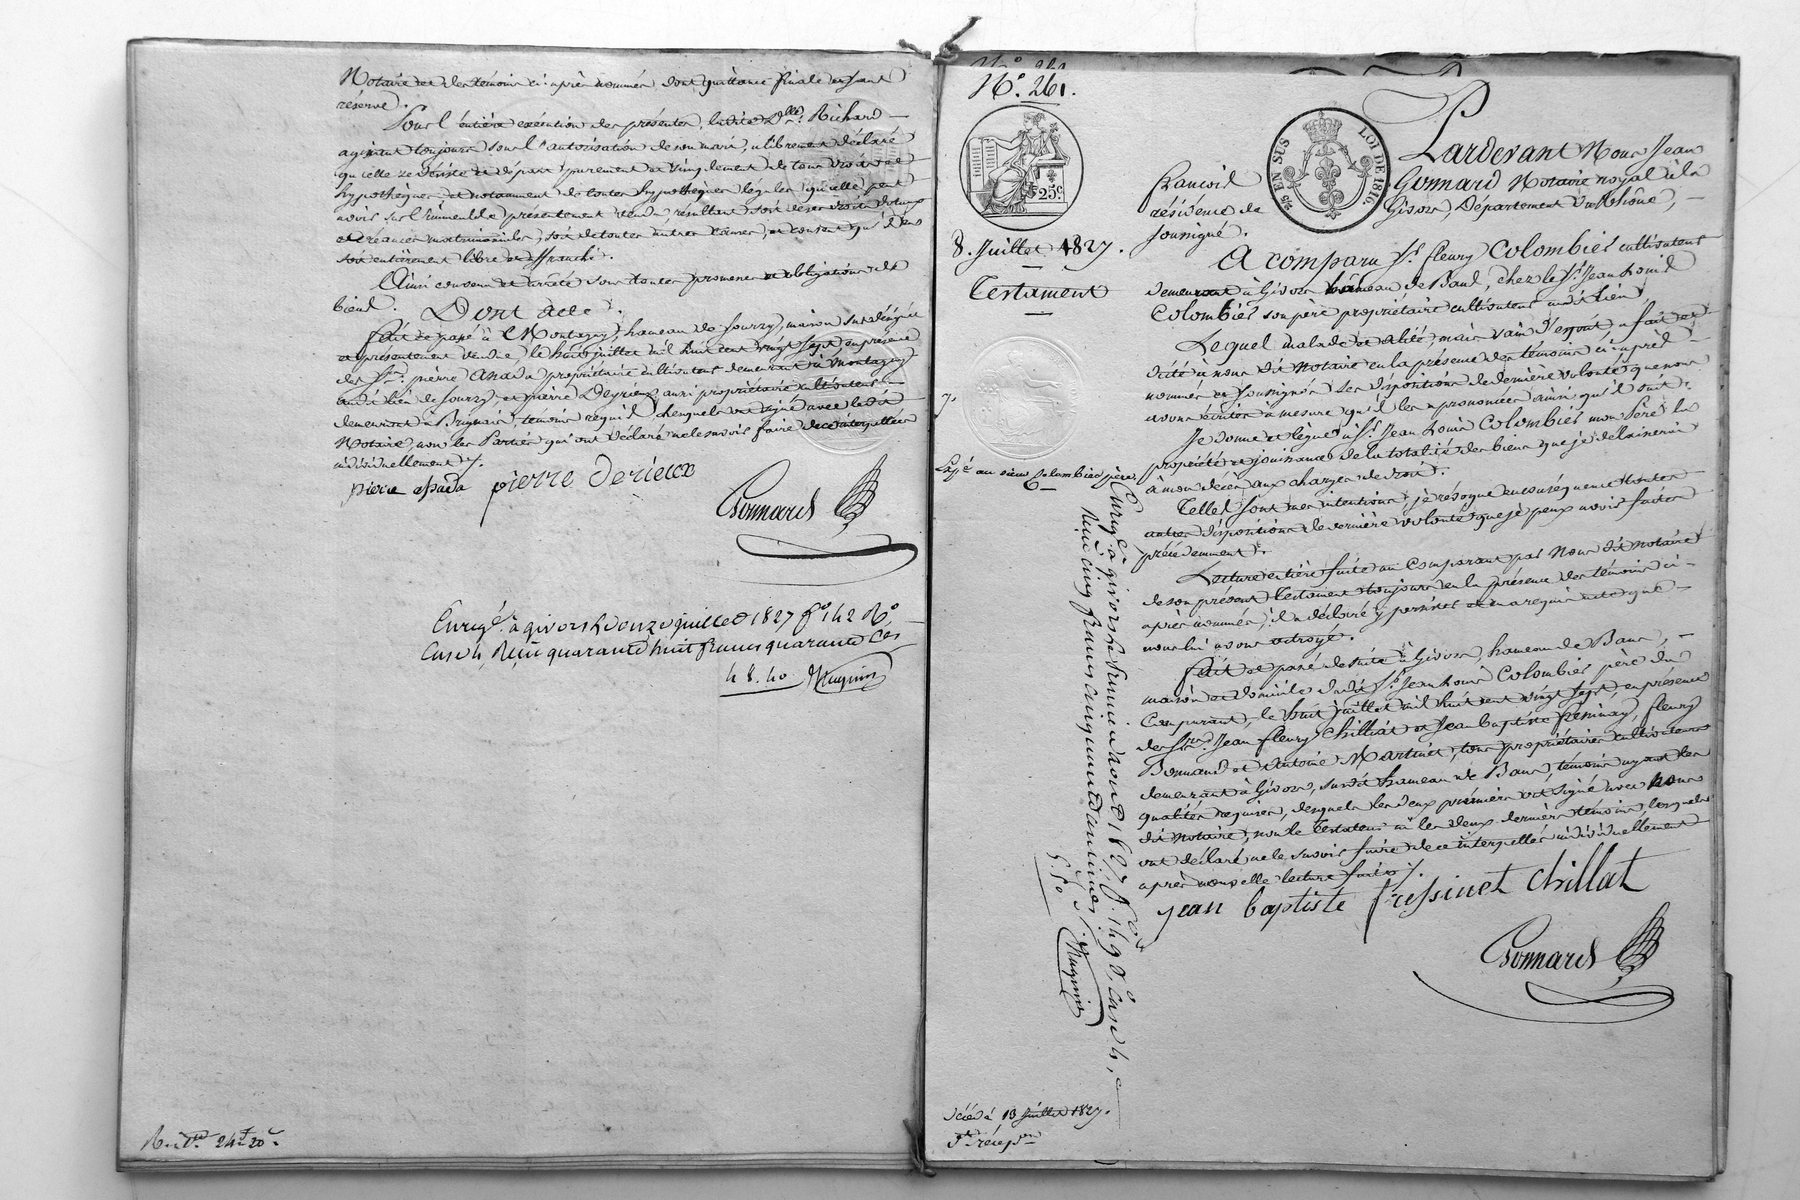 Notaire et des témoins ci après nommés dont quittance finale et sans
réserve.
Pour l'entière exécution des présentes, ladite Dlle. Richard
agissant toujours sous l'autorisation de son mari, a librement déclaré
qu'elle se désiste et départ purement et simplement de tous droits et
hypothèques et notamment de toutes hypothèques légales qu'elle peut
avoir sur l'immeuble présentement vendu, résultant soit de ses droits dotaux
et créances matrimoniales, soit de toutes autres causes, et consent qu'il en
soit entièrement libre et affranchi.
Ainsi convenu et arrêté sous toutes promesses et obligations de
biens. Dont acte.
fait et passé à Montagny, hameau de Sourzy, maison sus désignée
et présentement vendue le huit juillet mil huit cent vingt sept en présence
des Srs. pierre propriétaire cultivateur demeurant à Montagny
audit lieu de Sourzy et pierre Deyrieux aussi propriétaire cultivateur
demeurant à Brignais, témoins requis lesquels ont signé avec ledit
Notaire, non les Parties qui ont déclaré ne le savoir faire de ce interpellées
individuellement /.
pierre pierre derieux
Gonnard
Enregé. à givors le douze juillet 1827 fo. 142 Ro.
Case 4, Reçu quarante huit francs quarante Ces
48.40 Mugnier
24f 20c.
No. 261.
25c.
25 EN SUS
LOI DE 1816.
8. Juillet 1827.
Testament
7.
Expé au sieur Colombier père
Pardevant Nous Jean
françois Gonnard Notaire royal à la
résidence de Givors, Département du Rhône,
soussigné.
A comparu Sr. fleury Colombier cultivateur
demeurant à Givors hameau de Bans, chez le Sr. Jean Louis
Colombier son père propriétaire cultivateur audit lieu,
Lequel malade et alité, mais sain d'esprit, a fait et
dicté à nous dit Notaire en la présence des témoins ci après
nommés et soussignés ses dispositions de dernière volonté que nous
avons écrites à mesure qu'il les a prononcées ainsi qu'il suit.
Je donne et lègue à Sr. Jean Louis Colombier mon père la
propriété et jouissance de la totalité des biens que je délaisserai
à mon décès aux charges de droit.
Telles sont mes intentions, je révoque en conséquence toutes
autres dispositions de dernière volonté que je peux avoir faites
précédemment.
Lecture entière faite au Comparant par Nous dit notaire
de son présent testament toujours en la présence des témoins ci-
après nommés, il a déclaré y persister et en a requis acte que
nous lui avons octroyé.
fait et passé de suite à Givors, hameau de Bans,
maison et domicile dudit Sr. Jean Louis Colombier père du
Comparant, le huit juillet mil huit cent vingt sept, en présence
des Srs. Jean fleury Chillat et Jean baptiste fressinay, fleury
Bonnand et Antoine Martinet, tous propriétaires cultivateurs
demeurant à Givors, susdit hameau de Bans, témoins ayant les
qualités requises, desquels les deux premiers ont signé avec nous
dit notaire, non le testateur ni les deux derniers témoins, lesquels
ont déclaré ne le savoir faire de ce interpellés individuellement
après nouvelle lecture faite /.
jean baptiste fressinet Chillat
Gonnard
Enregé. à givors le août 1827 fo. 149 Vo. Case 4,
Reçu cinq francs cinquante centimes
5.50 Mugnier
décédé 13 juillet 1827.